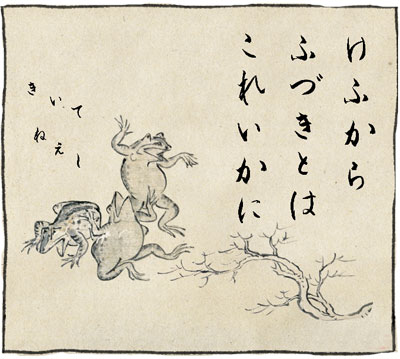 けふから
ふづきとは
これいかに
きいて
ねぇし